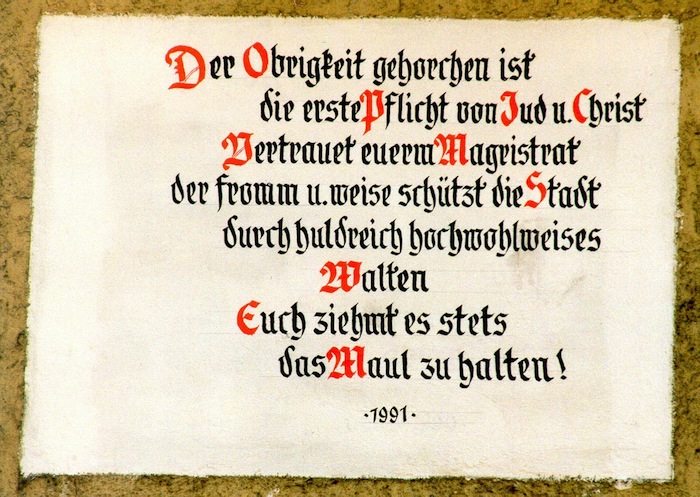 Der Obrigkeit gehorchen ist
die erste Pflicht von Jud u. Christ
Vertrauet euerm Magristrat
der fromm u. weise schützt die Stadt
durch huldreich hochwohlweises
Walten
Euch ziehmt es stets
das Maul zu halten!
·1991·